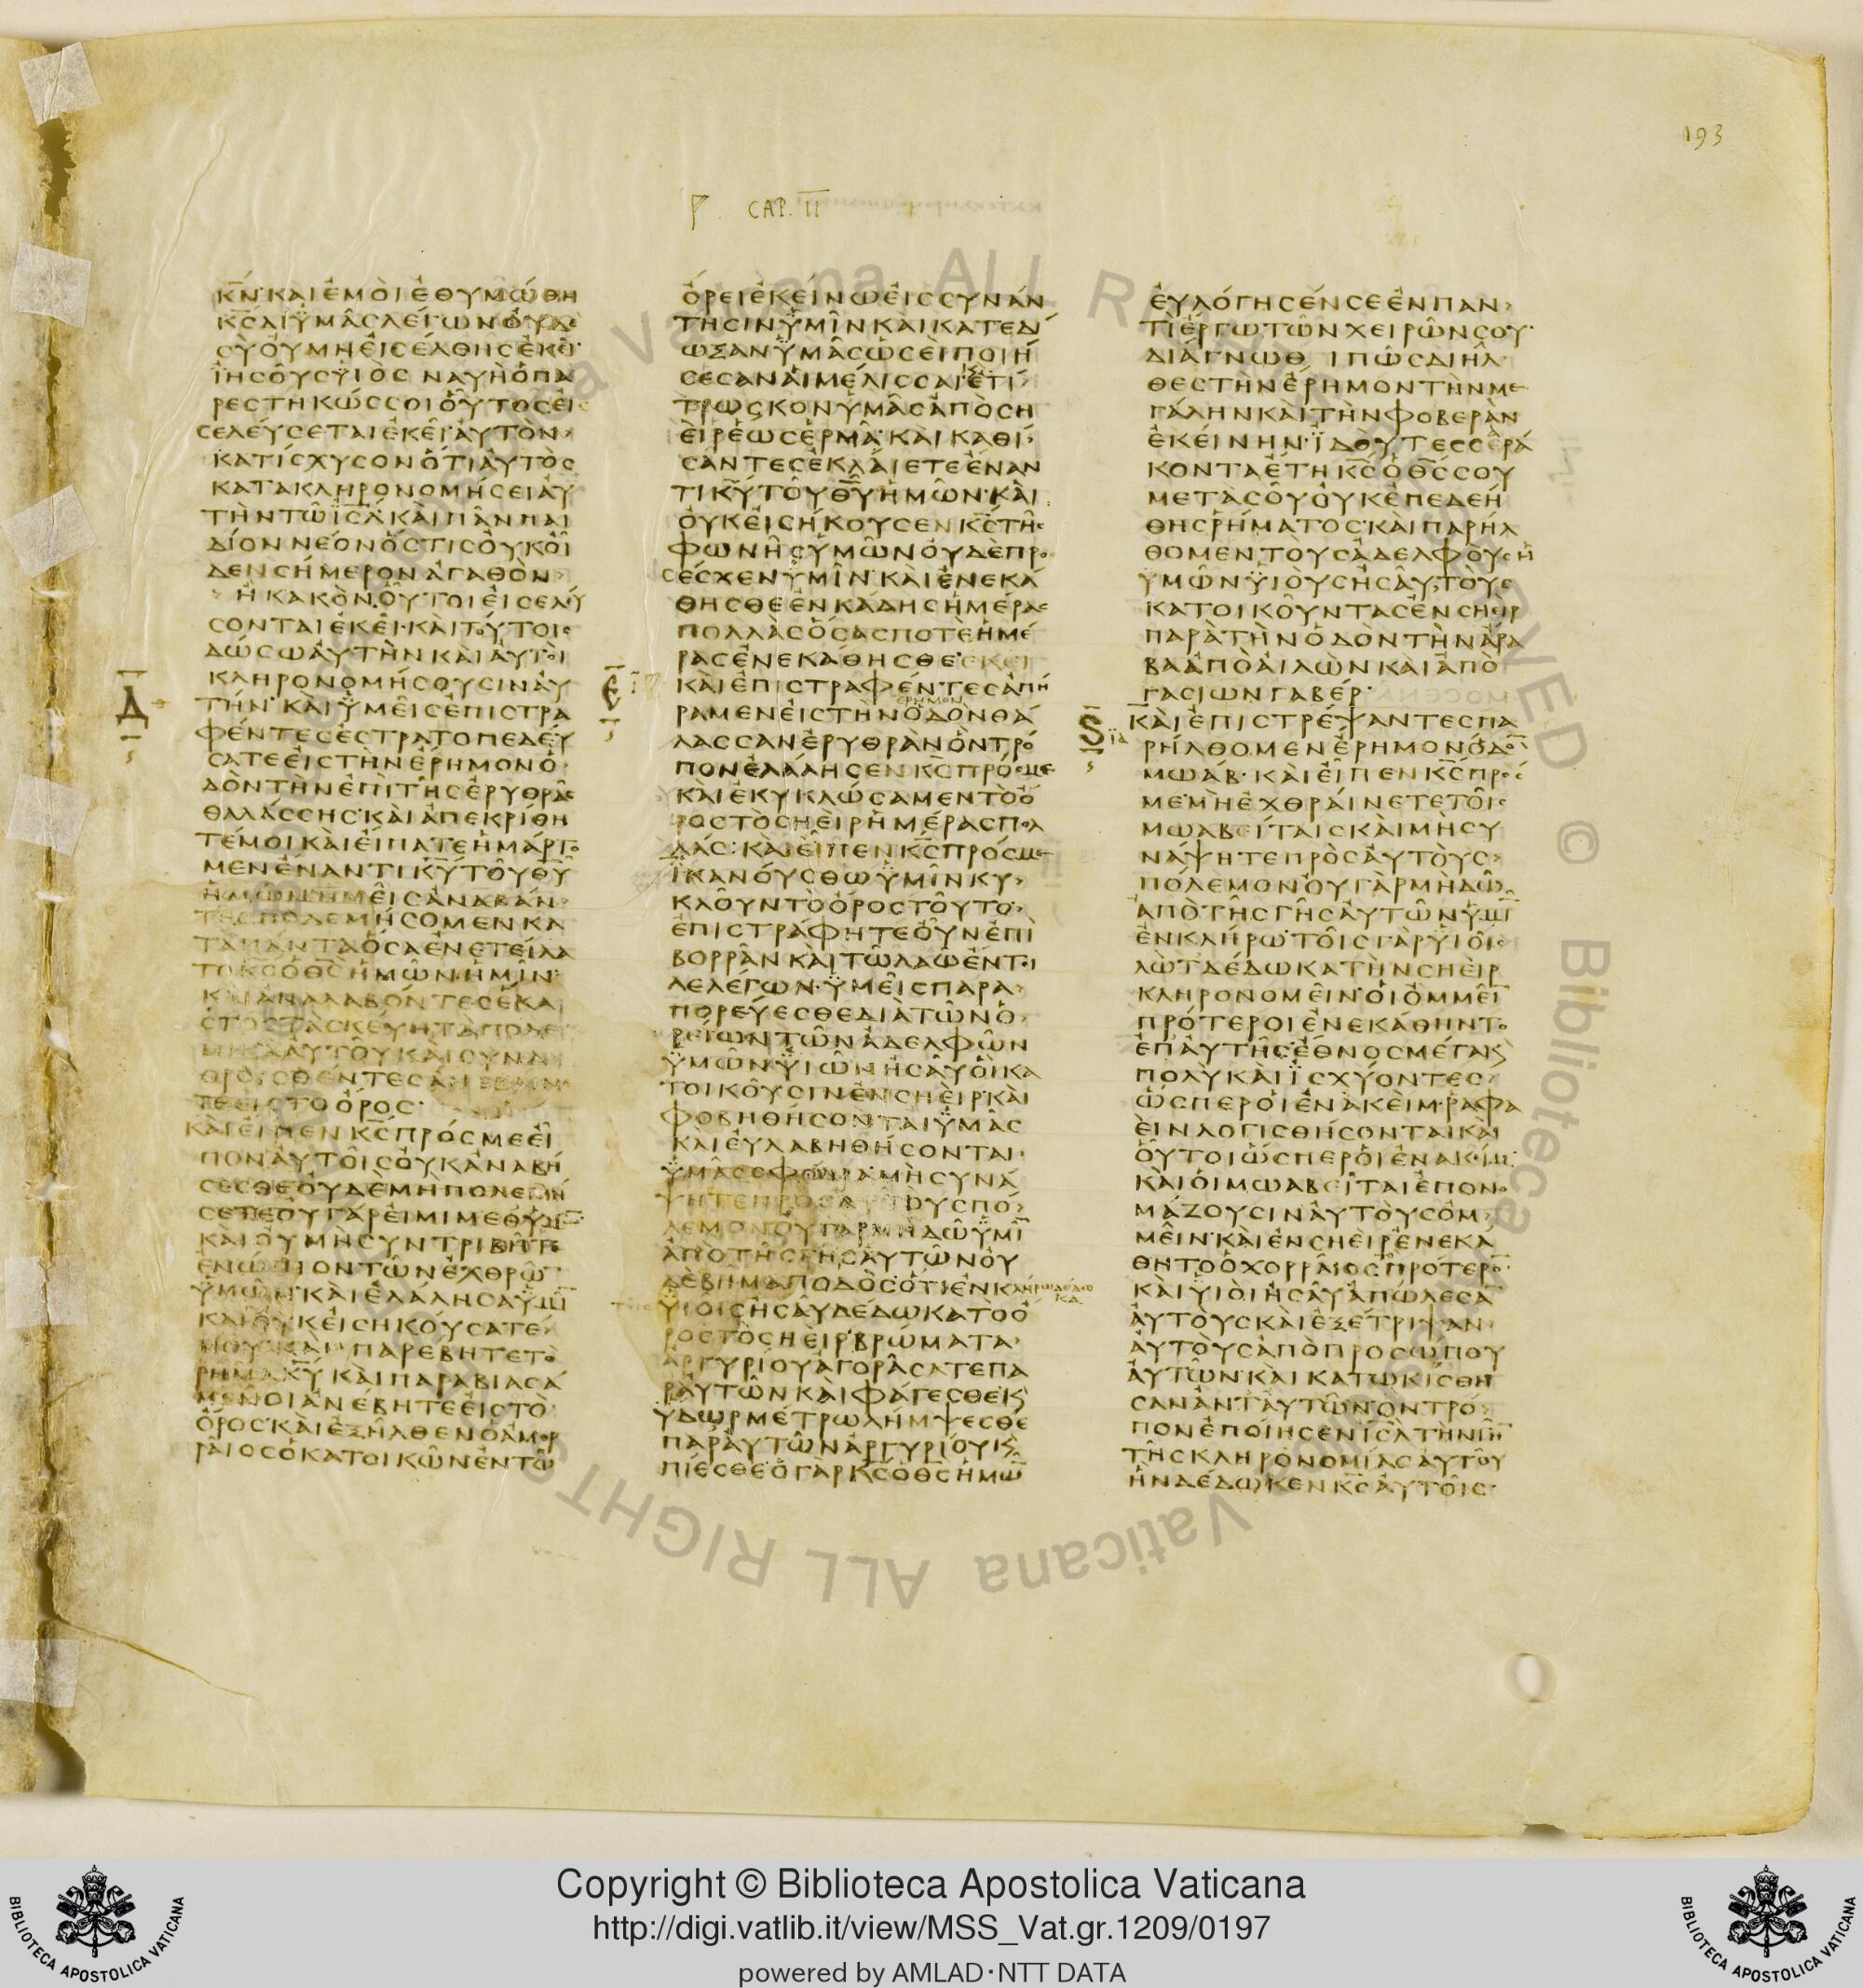 193
CAP. II
Κ̅Ν̅ ΚΑΙ ΕΜΟΙ ΕΘΥΜΩΘΗ
Κ̅Σ̅ ΔΙ ΥΜΑΣ ΛΕΓΩΝ ΟΥΔΕ
ΣΥ ΟΥ ΜΗ ΕΙΣΕΛΘΗΣ ΕΚΕΙ
ΙΗΣΟΥΣ ΥΙΟΣ ΝΑΥΗ Ο ΠΑ
ΡΕΣΤΗΚΩΣ ΣΟΙ ΟΥΤΟΣ ΕΙ
ΣΕΛΕΥΣΕΤΑΙ ΕΚΕΙ ΑΥΤΟΝ
ΚΑΤΙΣΧΥΣΟΝ ΟΤΙ ΑΥΤΟΣ
ΚΑΤΑΚΛΗΡΟΝΟΜΗΣΕΙ ΑΥ
ΤΗΝ ΤΩ Ι̅Σ̅Λ̅ ΚΑΙ ΠΑΝ ΠΑΙ
ΔΙΟΝ ΝΕΟΝ ΟΣΤΙΣ ΟΥΚ ΟΙ
ΔΕΝ ΣΗΜΕΡΟΝ ΑΓΑΘΟΝ
Η ΚΑΚΟΝ ΟΥΤΟΙ ΕΙΣΕΛΕΥ
ΣΟΝΤΑΙ ΕΚΕΙ ΚΑΙ ΤΟΥΤΟΙΣ
ΔΩΣΩ ΑΥΤΗΝ ΚΑΙ ΑΥΤΟΙ
ΚΛΗΡΟΝΟΜΗΣΟΥΣΙΝ ΑΥ
Δ ΤΗΝ ΚΑΙ ΥΜΕΙΣ ΕΠΙΣΤΡΑ
ΦΕΝΤΕΣ ΕΣΤΡΑΤΟΠΕΔΕΥ
ΣΑΤΕ ΕΙΣ ΤΗΝ ΕΡΗΜΟΝ Ο
ΔΟΝ ΤΗΝ ΕΠΙ ΤΗΣ ΕΡΥΘΡΑΣ
ΘΑΛΑΣΣΗΣ ΚΑΙ ΑΠΕΚΡΙΘΗ
ΤΕ ΜΟΙ ΚΑΙ ΕΙΠΑΤΕ ΗΜΑΡΤΟ
ΜΕΝ ΕΝΑΝΤΙ Κ̅Υ̅ ΤΟΥ Θ̅Υ̅
ΗΜΩΝ ΗΜΕΙΣ ΑΝΑΒΑΝ
ΤΕΣ ΠΟΛΕΜΗΣΟΜΕΝ ΚΑ
ΤΑ ΠΑΝΤΑ ΟΣΑ ΕΝΕΤΕΙΛΑ
ΤΟ Κ̅Σ̅ Ο Θ̅Σ̅ ΗΜΩΝ ΗΜΙΝ
ΚΑΙ ΑΝΑΛΑΒΟΝΤΕΣ ΕΚΑ
ΣΤΟΣ ΤΑ ΣΚΕΥΗ ΤΑ ΠΟΛΕ
ΜΙΚΑ ΑΥΤΟΥ ΚΑΙ ΣΥΝΑ
ΘΡΟΙΣΘΕΝΤΕΣ
ΤΕ ΕΙΣ ΤΟ ΟΡΟΣ
ΚΑΙ ΕΙΠΕΝ Κ̅Σ̅ ΠΡΟΣ ΜΕ ΕΙ
ΠΟΝ ΑΥΤΟΙΣ ΟΥΚ ΑΝΑΒΗ
ΣΕΣΘΕ ΟΥΔΕ ΜΗ ΠΟΛΕΜΗ
ΣΕΤΕ ΟΥ ΓΑΡ ΕΙΜΙ ΜΕΘ ΥΜΩ̅
ΚΑΙ ΟΥ ΜΗ ΣΥΝΤΡΙΒΗΤΕ
ΕΝΩΠΙΟΝ ΤΩΝ ΕΧΘΡΩ̅
ΥΜΩΝ ΚΑΙ ΕΛΑΛΗΣΑ ΥΜΙ̅
ΚΑΙ ΟΥΚ ΕΙΣΗΚΟΥΣΑΤΕ
ΜΟΥ ΚΑΙ ΠΑΡΕΒΗΤΕ ΤΟ
ΡΗΜΑ Κ̅Υ̅ ΚΑΙ ΠΑΡΑΒΙΑΣΑ
ΜΕΝΟΙ ΑΝΕΒΗΤΕ ΕΙΣ ΤΟ
ΟΡΟΣ ΚΑΙ ΕΞΗΛΘΕΝ Ο ΑΜΟΡ
ΡΑΙΟΣ Ο ΚΑΤΟΙΚΩΝ ΕΝ ΤΩ
ΟΡΕΙ ΕΚΕΙΝΩ ΕΙΣ ΣΥΝΑΝ
ΤΗΣΙΝ ΥΜΙΝ ΚΑΙ ΚΑΤΕΔΙ
ΩΞΑΝ ΥΜΑΣ ΩΣΕΙ ΠΟΙΗ
ΣΕΣΑΝ ΑΙ ΜΕΛΙΣΣΑΙ ΚΑΙ ΕΤΙ
ΤΡΩΣΚΟΝ ΥΜΑΣ ΑΠΟ ΣΗ
ΕΙΡ ΕΩΣ ΕΡΜΑ ΚΑΙ ΚΑΘΙ
ΣΑΝΤΕΣ ΕΚΛΑΙΕΤΕ ΕΝΑΝ
ΤΙ Κ̅Υ̅ ΤΟΥ Θ̅Υ̅ ΗΜΩΝ ΚΑΙ
ΟΥΚ ΕΙΣΗΚΟΥΣΕΝ Κ̅Σ̅ ΤΗΣ
ΦΩΝΗΣ ΥΜΩΝ ΟΥΔΕ ΠΡΟ
ΣΕΣΧΕΝ ΥΜΙΝ ΚΑΙ ΕΝΕΚΑ
ΘΗΣΘΕ ΕΝ ΚΑΔΗΣ ΗΜΕΡΑΣ
ΠΟΛΛΑΣ ΟΣΑΣ ΠΟΤΕ ΗΜΕ
ΡΑΣ ΕΝΕΚΑΘΗΣΘΕ ΕΚΕΙ
Ε ΚΑΙ ΕΠΙΣΤΡΑΦΕΝΤΕΣ ΑΠΗ
ΕΡΗΜΟΝ
ΡΑΜΕΝ ΕΙΣ ΤΗΝ ΟΔΟΝ ΘΑ
ΛΑΣΣΑΝ ΕΡΥΘΡΑΝ ΟΝ ΤΡΟ
ΠΟΝ ΕΛΑΛΗΣΕΝ Κ̅Σ̅ ΠΡΟΣ ΜΕ
ΚΑΙ ΕΚΥΚΛΩΣΑΜΕΝ ΤΟ Ο
ΡΟΣ ΤΟ ΣΗΕΙΡ ΗΜΕΡΑΣ ΠΟΛ
ΛΑΣ ΚΑΙ ΕΙΠΕΝ Κ̅Σ̅ ΠΡΟΣ ΜΕ
ΙΚΑΝΟΥΣΘΩ ΥΜΙΝ ΚΥ
ΚΛΟΥΝ ΤΟ ΟΡΟΣ ΤΟΥΤΟ
ΕΠΙΣΤΡΑΦΗΤΕ ΟΥΝ ΕΠΙ
ΒΟΡΡΑΝ ΚΑΙ ΤΩ ΛΑΩ ΕΝΤΙ
ΛΕ ΛΕΓΩΝ ΥΜΕΙΣ ΠΑΡΑ
ΠΟΡΕΥΕΣΘΕ ΔΙΑ ΤΩΝ Ο
ΡΕΙΩΝ ΤΩΝ ΑΔΕΛΦΩΝ
ΥΜΩΝ ΥΙΩΝ ΗΣΑΥ ΟΙ ΚΑ
ΤΟΙΚΟΥΣΙΝ ΕΝ ΣΗΕΙΡ ΚΑΙ
ΦΟΒΗΘΗΣΟΝΤΑΙ ΥΜΑΣ
ΚΑΙ ΕΥΛΑΒΗΘΗΣΟΝΤΑΙ
ΥΜΑΣ ΣΦΟΔΡΑ ΜΗ ΣΥΝΑ
ΨΗΤΕ ΠΡΟΣ ΑΥΤΟΥΣ ΠΟ
ΛΕΜΟΝ ΟΥ ΓΑΡ ΜΗ ΔΩ ΥΜΙ̅
ΑΠΟ ΤΗΣ ΓΗΣ ΑΥΤΩΝ ΟΥ
ΔΕ ΒΗΜΑ ΠΟΔΟΣ ΟΤΙ ΕΝ ΚΛΗΡΩ ΔΕΔΩ
ΚΑ
ΥΙΟΙΣ ΗΣΑΥ ΔΕΔΩΚΑ ΤΟ Ο
ΡΟΣ ΤΟ ΣΗΕΙΡ ΒΡΩΜΑΤΑ
ΑΡΓΥΡΙΟΥ ΑΓΟΡΑΣΑΤΕ ΠΑ
Ρ ΑΥΤΩΝ ΚΑΙ ΦΑΓΕΣΘΕ Κ
ΥΔΩΡ ΜΕΤΡΩ ΛΗΜΨΕΣΘΕ
ΠΑΡ ΑΥΤΩΝ ΑΡΓΥΡΙΟΥ Κ
ΠΙΕΣΘΕ Ο ΓΑΡ Κ̅Σ̅ Ο Θ̅Σ̅ ΗΜΩ̅
ΕΥΛΟΓΗΣΕΝ ΣΕ ΕΝ ΠΑΝ
ΤΙ ΕΡΓΩ ΤΩΝ ΧΕΙΡΩΝ ΣΟΥ
ΔΙΑΓΝΩΘΙ ΠΩΣ ΔΙΗΛ
ΘΕΣ ΤΗΝ ΕΡΗΜΟΝ ΤΗΝ ΜΕ
ΓΑΛΗΝ ΚΑΙ ΤΗΝ ΦΟΒΕΡΑΝ
ΕΚΕΙΝΗΝ ΙΔΟΥ ΤΕΣΣΕΡΑ
ΚΟΝΤΑ ΕΤΗ Κ̅Σ̅ Ο Θ̅Σ̅ ΣΟΥ
ΜΕΤΑ ΣΟΥ ΟΥΚ ΕΠΕΔΕΗ
ΘΗΣ ΡΗΜΑΤΟΣ ΚΑΙ ΠΑΡΗΛ
ΘΟΜΕΝ ΤΟΥΣ ΑΔΕΛΦΟΥΣ Η
ΥΜΩΝ ΥΙΟΥΣ ΗΣΑΥ ΤΟΥΣ
ΚΑΤΟΙΚΟΥΝΤΑΣ ΕΝ ΣΗΕΙΡ
ΠΑΡΑ ΤΗΝ ΟΔΟΝ ΤΗΝ ΑΡΑ
ΒΑ ΑΠΟ ΑΙΛΩΝ ΚΑΙ ΑΠΟ
ΓΑΣΙΩΝ ΓΑΒΕΡ
Ϛ ΚΑΙ ΕΠΙΣΤΡΕΨΑΝΤΕΣ ΠΑ
ΡΗΛΘΟΜΕΝ ΕΡΗΜΟΝ ΟΔΟ̅
ΜΩΑΒ ΚΑΙ ΕΙΠΕΝ Κ̅Σ̅ ΠΡΟΣ
ΜΕ ΜΗ ΕΧΘΡΑΙΝΕΤΕ ΤΟΙΣ
ΜΩΑΒΕΙΤΑΙΣ ΚΑΙ ΜΗ ΣΥ
ΝΑΨΗΤΕ ΠΡΟΣ ΑΥΤΟΥΣ
ΠΟΛΕΜΟΝ ΟΥ ΓΑΡ ΜΗ ΔΩ
ΑΠΟ ΤΗΣ ΓΗΣ ΑΥΤΩΝ ΥΜΙ̅
ΕΝ ΚΛΗΡΩ ΤΟΙΣ ΓΑΡ ΥΙΟΙΣ
ΛΩΤ ΔΕΔΩΚΑ ΤΗΝ ΣΗΕΙΡ
ΚΛΗΡΟΝΟΜΕΙΝ ΟΙ ΟΜΜΕΙ̅
ΠΡΟΤΕΡΟΙ ΕΝΕΚΑΘΗΝΤΟ
ΕΠ ΑΥΤΗΣ ΕΘΝΟΣ ΜΕΓΑ Κ
ΠΟΛΥ ΚΑΙ ΙΣΧΥΟΝΤΕΣ
ΩΣΠΕΡ ΟΙ ΕΝΑΚΕΙΜ ΡΑΦΑ
ΕΙΝ ΛΟΓΙΣΘΗΣΟΝΤΑΙ ΚΑΙ
ΟΥΤΟΙ ΩΣΠΕΡ ΟΙ ΕΝΑΚΙΜ
ΚΑΙ ΟΙ ΜΩΑΒΕΙΤΑΙ ΕΠΟΝΟ
ΜΑΖΟΥΣΙΝ ΑΥΤΟΥΣ ΟΜ
ΜΕΙΝ ΚΑΙ ΕΝ ΣΗΕΙΡ ΕΝΕΚΑ
ΘΗΤΟ Ο ΧΟΡΡΑΙΟΣ ΠΡΟΤΕΡΟ̅
ΚΑΙ ΥΙΟΙ ΗΣΑΥ ΑΠΩΛΕΣΑ̅
ΑΥΤΟΥΣ ΚΑΙ ΕΞΕΤΡΙΨΑΝ
ΑΥΤΟΥΣ ΑΠΟ ΠΡΟΣΩΠΟΥ
ΑΥΤΩΝ ΚΑΙ ΚΑΤΩΚΙΣΘΗ
ΣΑΝ ΑΝΤ ΑΥΤΩΝ ΟΝ ΤΡΟ
ΠΟΝ ΕΠΟΙΗΣΕΝ Ι̅Σ̅Λ̅ ΤΗΝ ΓΗ̅
ΤΗΣ ΚΛΗΡΟΝΟΜΙΑΣ ΑΥΤΟΥ
ΗΝ ΔΕΔΩΚΕΝ Κ̅Σ̅ ΑΥΤΟΙΣ
Copyright © Biblioteca Apostolica Vaticana
http://digi.vatlib.it/view/MSS_Vat.gr.1209/0197
powered by AMLAD·NTT DATA
BIBLIOTECA APOSTOLICA VATICANA
BIBLIOTECA APOSTOLICA VATICANA
© Biblioteca Vaticana ALL RIGHTS RESERVED